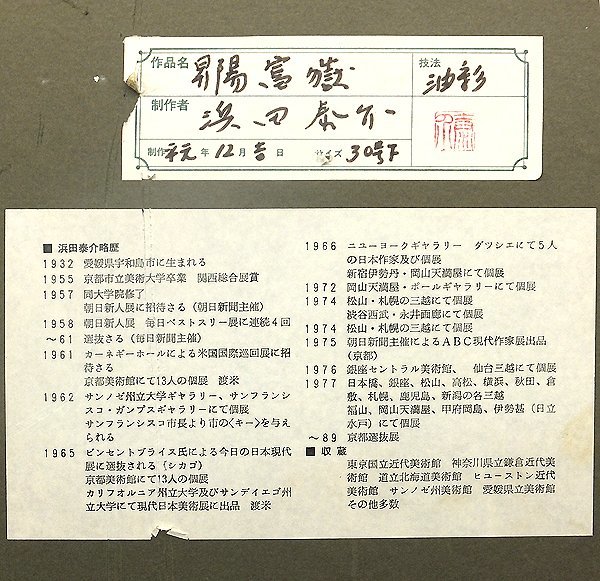 作品名 昇陽富嶽
技法
油彩
制作者 浜田泰介
制作 平元年12月吉日 サイズ 30号F
■ 浜田泰介略歴
1932 愛媛県宇和島市に生まれる
1955 京都市立美術大学卒業 関西総合展賞
1957 同大学院修了
朝日新人展に招待さる（朝日新聞主催）
1958 朝日新人展 毎日ベストスリー展に連続4回
～61 選抜さる（毎日新聞主催）
1961 カーネギーホールによる米国国際巡回展に招
待さる
京都美術館にて13人の個展 渡米
1962 サンノゼ州立大学ギャラリー、サンフランシ
スコ・ガンプスギャラリーにて個展
サンフランシスコ市長より市の〈キー〉を与え
られる
1965 ビンセントプライス氏による今日の日本現代
展に選抜される（シカゴ）
京都美術館にて13人の個展
カリフオルニア州立大学及びサンデイエゴ州
立大学にて現代日本美術展に出品 渡米
1966 ニユーヨークギャラリー ダツシエにて5人
の日本作家及び個展
新宿伊勢丹・岡山天満屋にて個展
1972 岡山天満屋・ポールギャラリーにて個展
1974 松山・札幌の三越にて個展
渋谷西武・永井画廊にて個展
1974 松山・札幌の三越にて個展
1975 朝日新聞主催によるABC現代作家展出品
（京都）
1976 銀座セントラル美術館、 仙台三越にて個展
1977 日本橋、銀座、松山、高松、横浜、秋田、倉
敷、札幌、鹿児島、新潟の各三越
福山、岡山天満屋、甲府岡島、伊勢甚（日立
水戸）にて個展
～89 京都選抜展
■ 収蔵
東京国立近代美術館 神奈川県立鎌倉近代美
術館 道立北海道美術館 ヒューストン近代
美術館 サンノゼ州美術館 愛媛県立美術館
その他多数